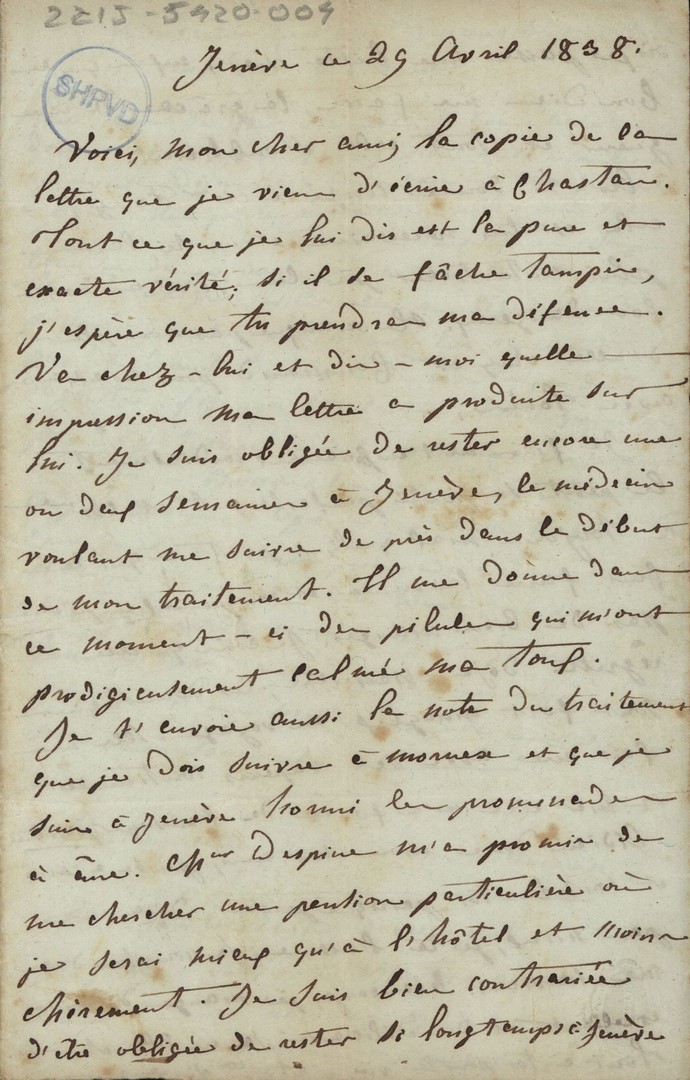 2215-5420-004
SHPVD
Jenève ce 29 Avril 1838.
Voici, mon cher ami, la copie de la
lettre que je viens d'écrire à Chastan.
Tout ce que je lui dis est la pure et
exacte vérité; si il se fâche tampis,
j'espère que tu prendras ma défense.
Va chez-lui et dis-moi quelle
impression ma lettre a produite sur
lui. Je suis obligée de rester encore une
ou deux semaines à Jenève, le médecin
voulant me suivre de près dans le début
de mon traitement. Il me donne dans
ce moment-ci des pilules qui m'ont
prodigieusement calmé ma toux.
Je t'envoie aussi la note du traitement
que je dois suivre à mornex et que je
suis à Jenève hormi les promenades
à âne. Mr Despine m'a promis de
me chercher une pention particulière où
je serai mieux qu'à l'hôtel et moins
chèrement. Je suis bien contrariée
d'être obligée de rester si longtemps à Jenève